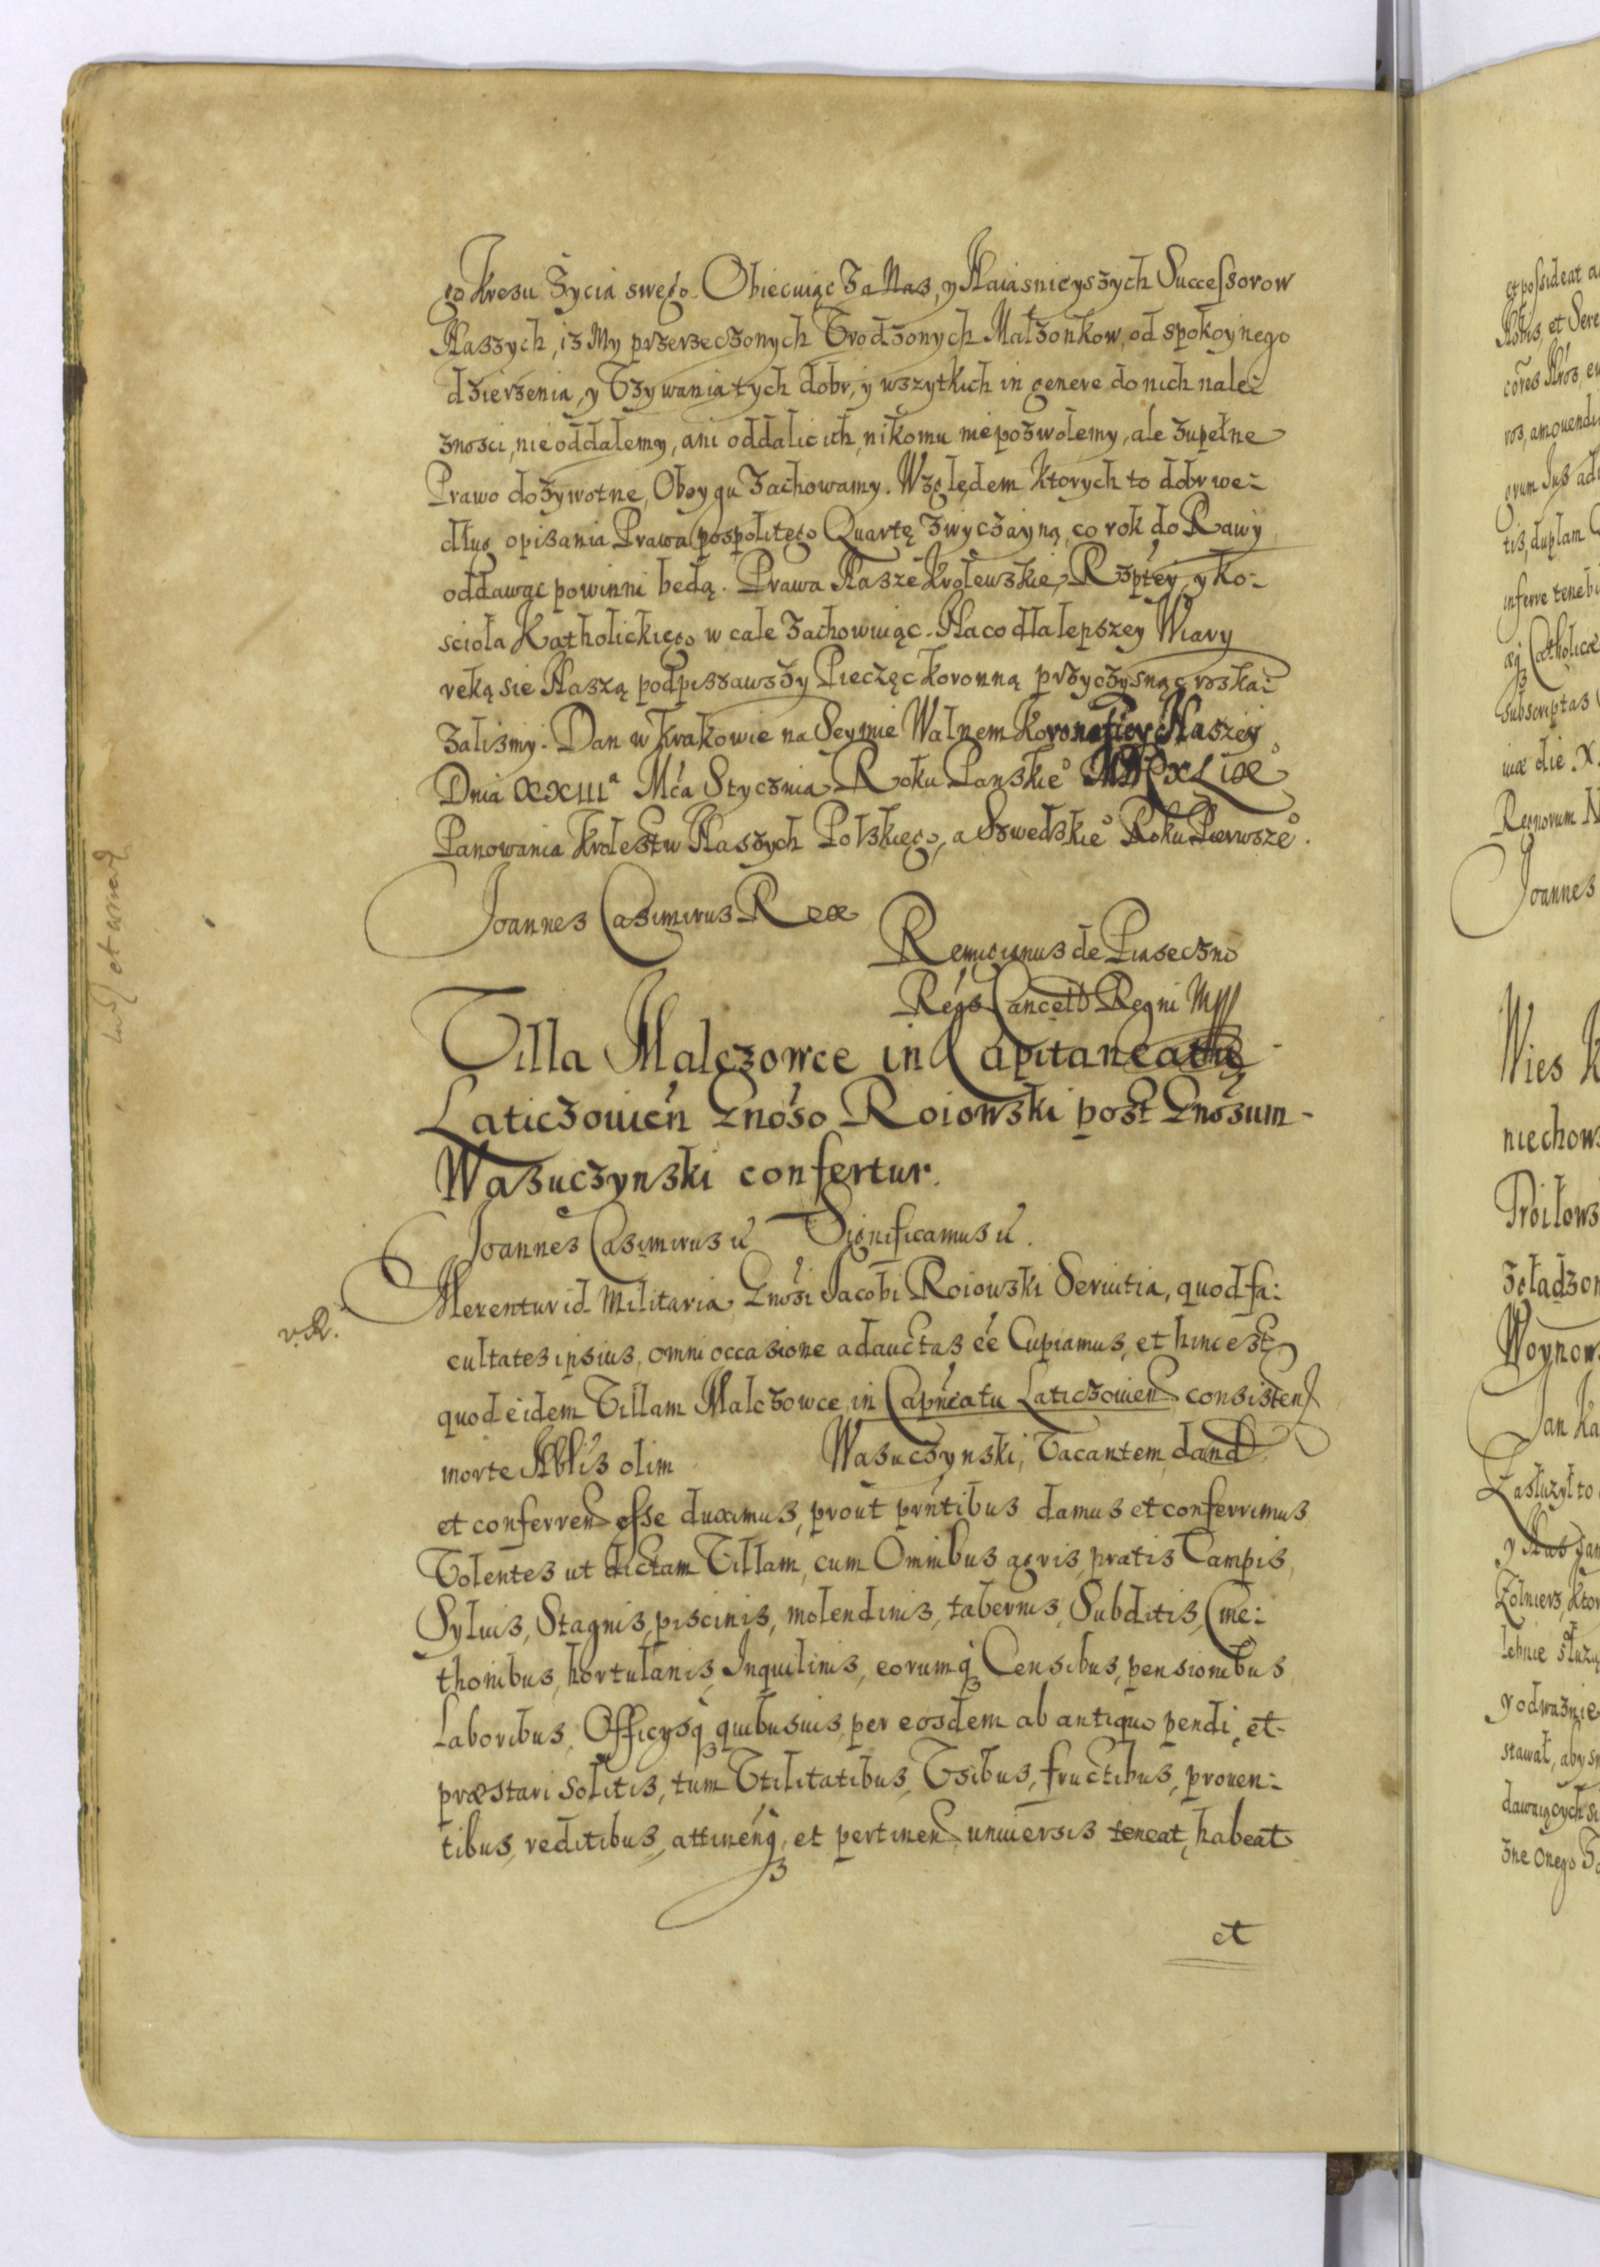 go kresu Zycia swego. Obiecuiąc za Nas, y Naiasnieyszych Successorow
Naszych, iz My przerzeczonych Vrodzonych Małzonkow, od spokoynego
dzierzenia, y Vzywania tych dobr, y wszytkich in genere do nich nale-
znosci, nie oddalemy, ani oddalic ich, nikomu niepozwolemy, ale zupełne
Prawo dozywotne, Oboygu zachowamy. Względem ktorych to dobr we-
dług opisania Prawa pospolitego Quartę zwyczayną, co rok do Rawy
oddawac powinni będą. Prawa Nasze krolewskie, Rzptey, y ko-
sciola Katholickiego w cale zachowuiąc. Na co dla lepszey Wiary
ręką się Naszą podpisawszy Pieczęc koronną przycisnąc rozka-
zalismy. Dan w krakowie na Seymie Walnem koronatiey Naszey
Dnia XXIIIa Mća Stycznia Roku Panskieo MDCXLIX
Panowania krolestw Naszych Polskiego, a Szwedskieo Roku Pierwszeo.
Joannes Casimirus Rex
Remigianus de Piaseczno
Regs Cancell Regni
Villa Malczowce in Capitaneatu
Laticzouien Gnoso Roiowski post Gnosum
Wasuczynski confertur.
Joannes Casimirus Significamus
v. R.
Merentur id Militaria Gnosi Jacobi Roiowski Seruitia, quod fa-
cultates ipsius, omni occasione adauctas ee Cupiamus, et hinc est
quod eidem Villam Malczowce in Capneatu Laticzouien consisten
morte Nblis olim Wasuczynski, Vacantem dand
et conferren esse duximus, prout prntibus damus et conferrimus
Volentes ut dictam Villam, cum Omnibus agris, pratis Campis,
Syluis, Stagnis, piscinis, molendinis, tabernis, Subditis, Cme-
thonibus, hortulanis, Inquilinis, eorumq Censibus, pensionibus
Laboribus, Officysq quibusuis, per eosdem ab antiquo pendi, et
præstari solitis, tum Vtilitatibus, Vsibus, fructibus, prouen-
tibus, reditibus, attinenq, et pertinen uniuersis teneat, habeat
et